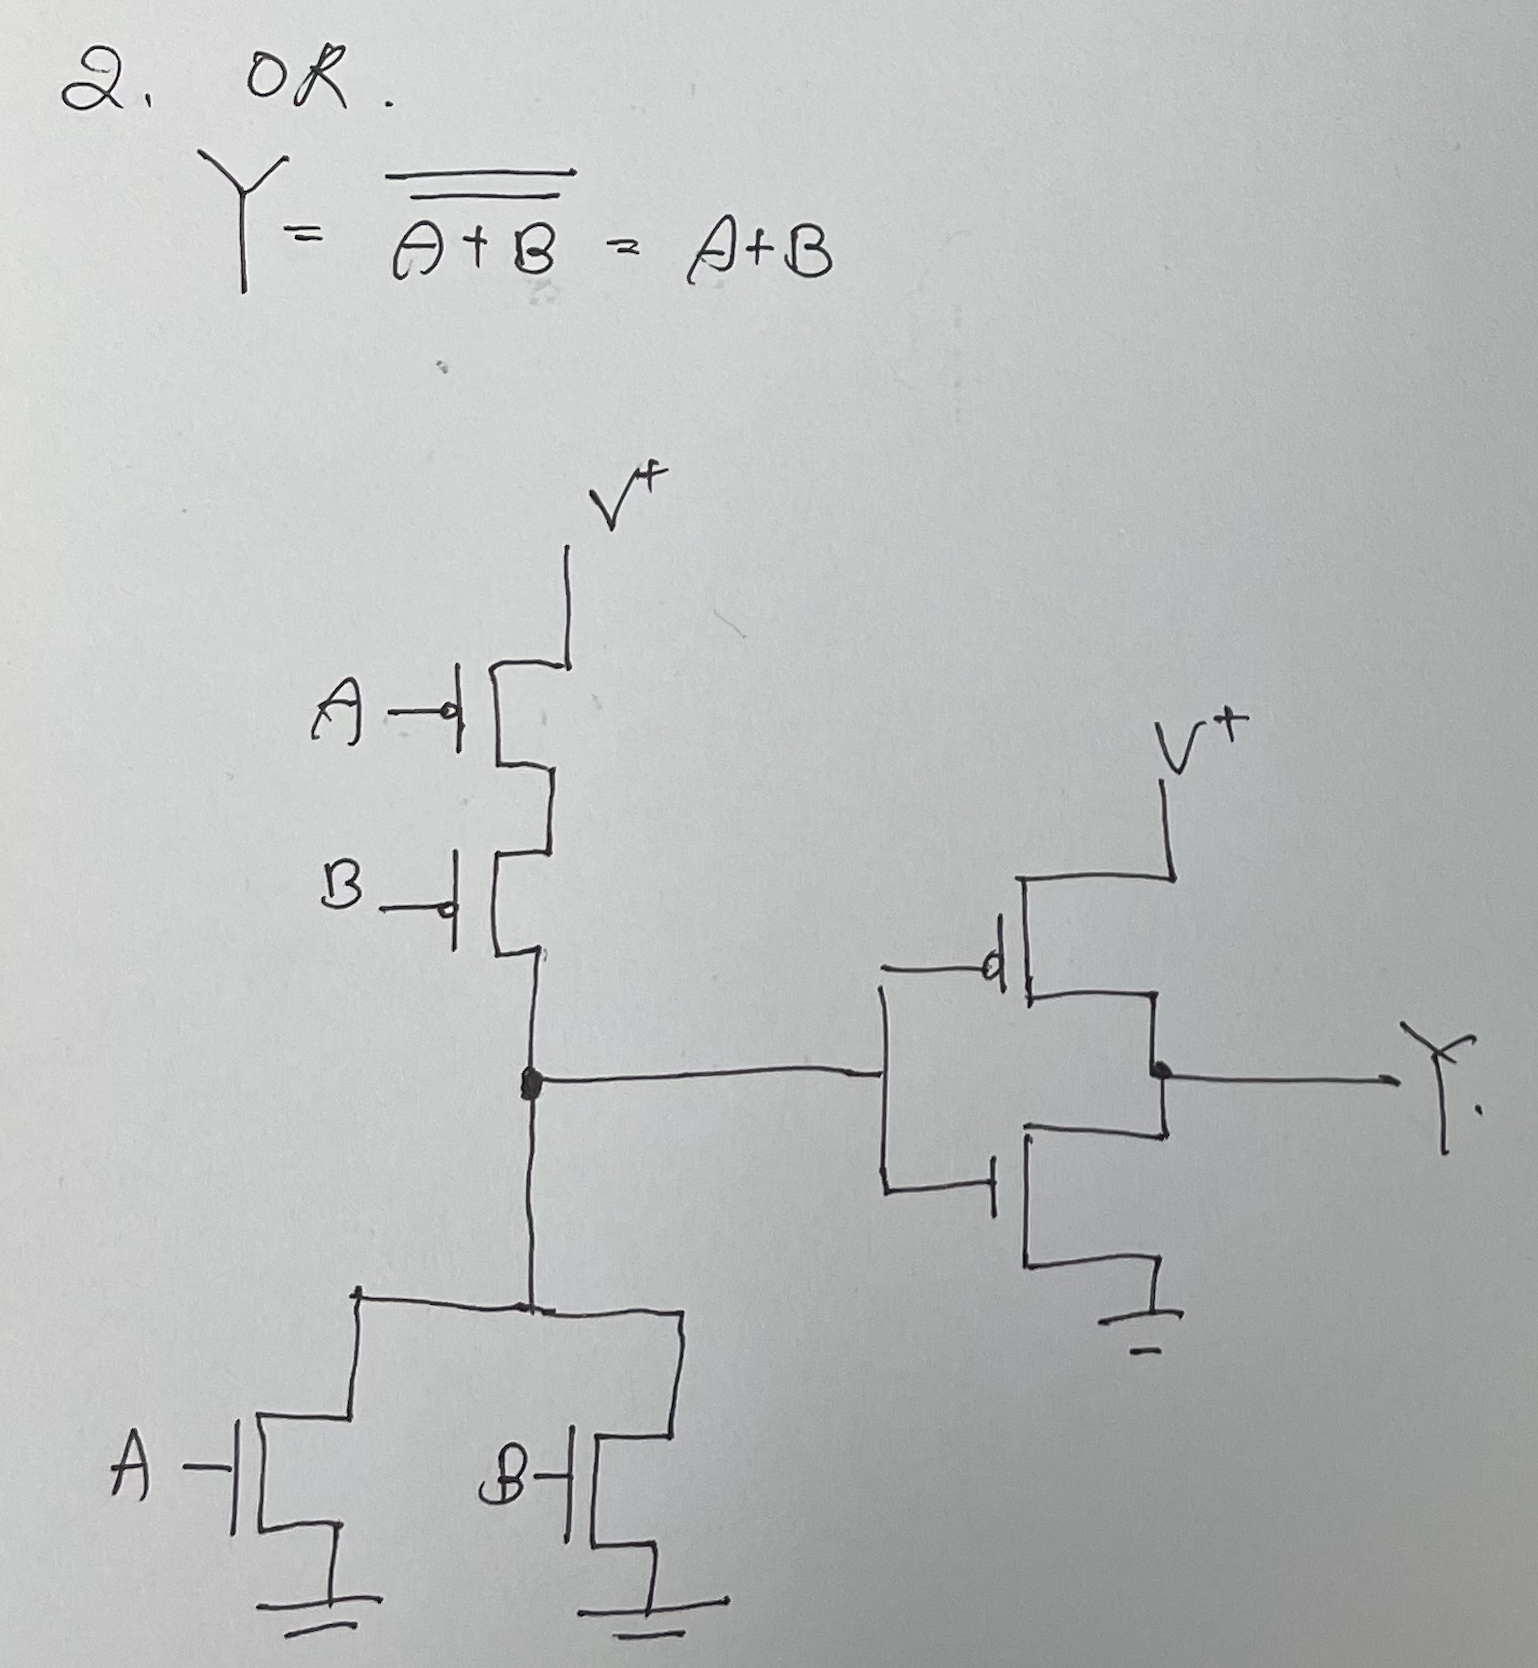 2. OR.
Y = \overline{\overline{A+B}} = A+B
V+
A
B
V+
Y.
A
B